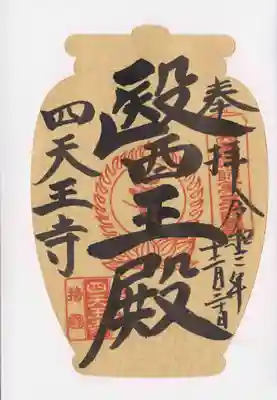 奉拝 令和二年
十二月二十日
醫王殿
四天王寺